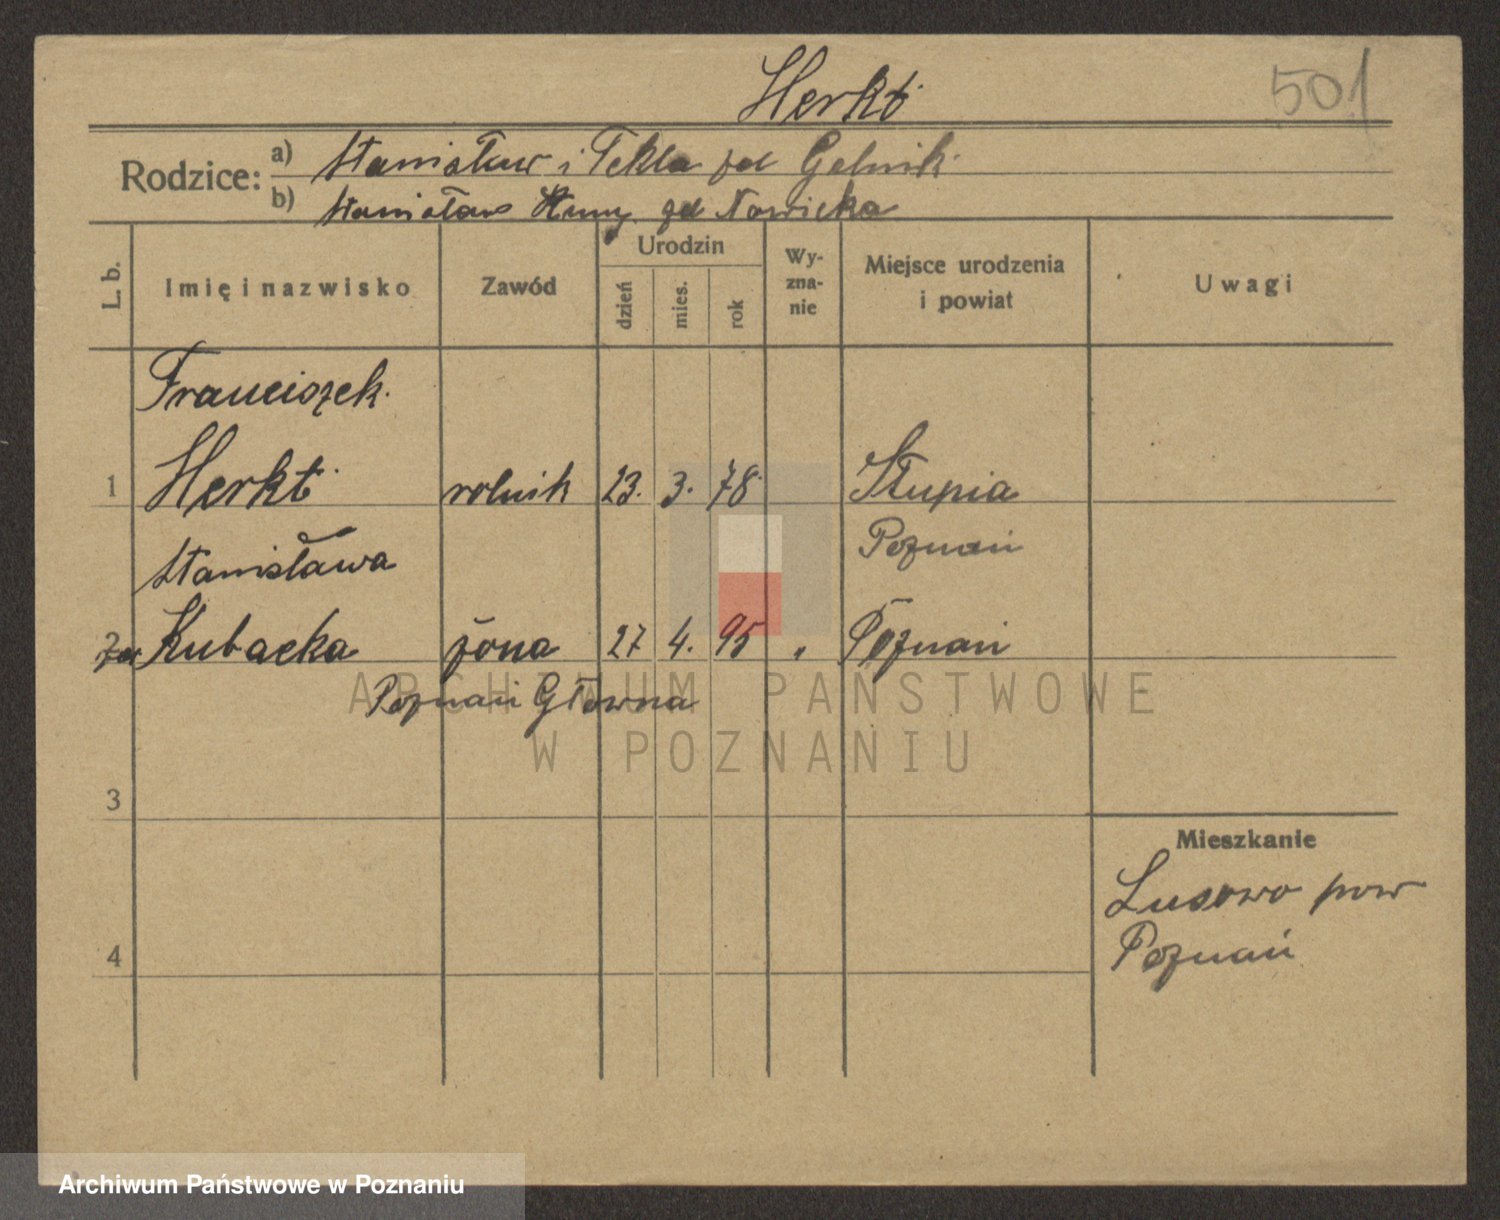 Herkt
501
Rodzice: a) Stanisław i Tekla zd Gelnik
b) Stanisław zd Nowicka
L. b. Imię i nazwisko Zawód Urodzin dzień mies. rok Wy-zna-nie Miejsce urodzenia i powiat Uwagi
Franciszek
1 Herkt rolnik 23. 3. 78 Słupia
Stanisława Poznań
2 Kubacka żona 27 4. 95 " Poznań
Poznań Główna
ARCHIWUM PAŃSTWOWE
W POZNANIU
3
Mieszkanie
Lusowo pow
Poznań
4
Archiwum Państwowe w Poznaniu